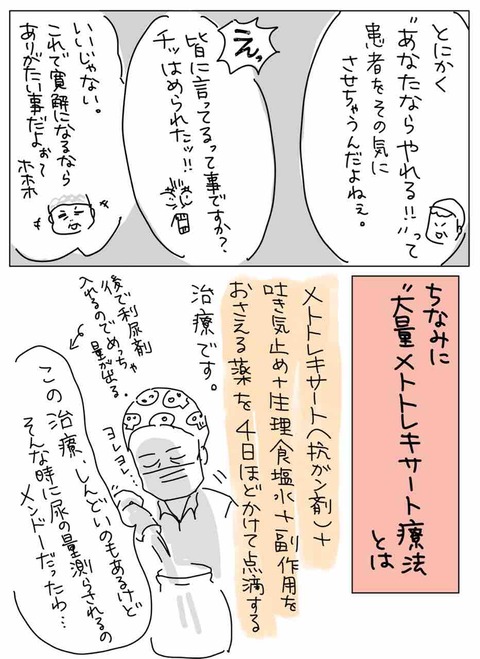 とにかく
"あなたならやれる!!"って
患者をその気に
させちゃうんだよねぇ。
えっ
皆に言ってるって事ですか?
チッはめられたッ!!
いいじゃない。
これで寛解になるなら
ありがたい事だよぉ〜
ホホホ
ちなみに
"大量メトトレキサート療法"
とは
メトトレキサート(抗ガン剤)+
吐き気止め+生理食塩水+副作用を
おさえる薬を4日ほどかけて点滴する
治療です。
後で利尿剤
入れるのでめっちゃ
量が出る。
ヨレヨレ…
この治療、しんどいのもあるけど
そんな時に尿の量測らされるの
メンドーだったわ…